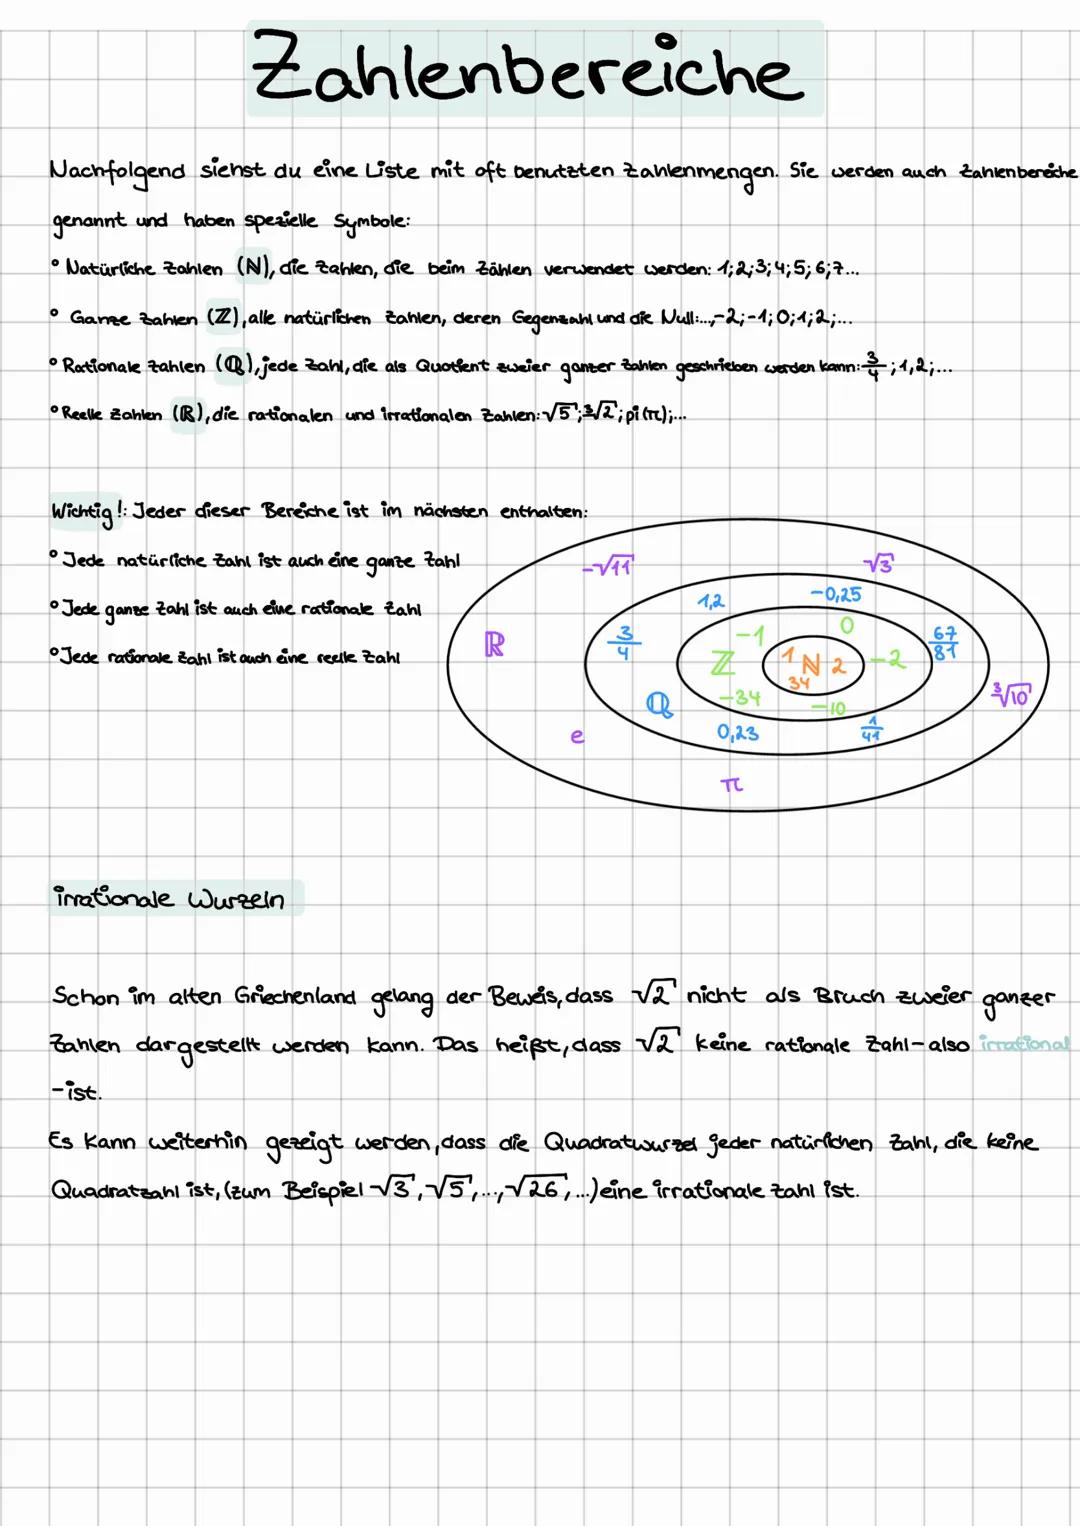 Zahlenbereiche
Nachfolgend siehst du eine Liste mit oft benutzten Zahlenmengen. Sie werden auch Zahlenbereiche
genannt und haben spezielle Symbole:
° Natürliche Zahlen (ℕ), die Zahlen, die beim Zählen verwendet werden: 1; 2; 3; 4; 5; 6; 7...
° Ganze Zahlen (ℤ), alle natürlichen Zahlen, deren Gegenzahl und die Null: ...,-2;-1;0;1;2;...
° Rationale Zahlen (ℚ), jede Zahl, die als Quotient zweier ganzer Zahlen geschrieben werden kann: 3/4; 1,2;...
° Reelle Zahlen (ℝ), die rationalen und irrationalen Zahlen: √5; ³√2; pi (π);...
Wichtig!: Jeder dieser Bereiche ist im nächsten enthalten:
° Jede natürliche Zahl ist auch eine ganze Zahl
° Jede ganze Zahl ist auch eine rationale Zahl
° Jede rationale Zahl ist auch eine reelle Zahl
-√11 √3
1,2 -0,25
ℝ 3/4 -1 0 67/81
ℤ 1 ℕ 2 -2
34
ℚ -34 -10 ³√10
e 0,23 1/41
π
irrationale Wurzeln
Schon im alten Griechenland gelang der Beweis, dass √2 nicht als Bruch zweier ganzer
Zahlen dargestellt werden kann. Das heißt, dass √2 keine rationale Zahl - also irrational
- ist.
Es kann weiterhin gezeigt werden, dass die Quadratwurzel jeder natürlichen Zahl, die keine
Quadratzahl ist, (zum Beispiel √3, √5, ..., √26, ...) eine irrationale Zahl ist.